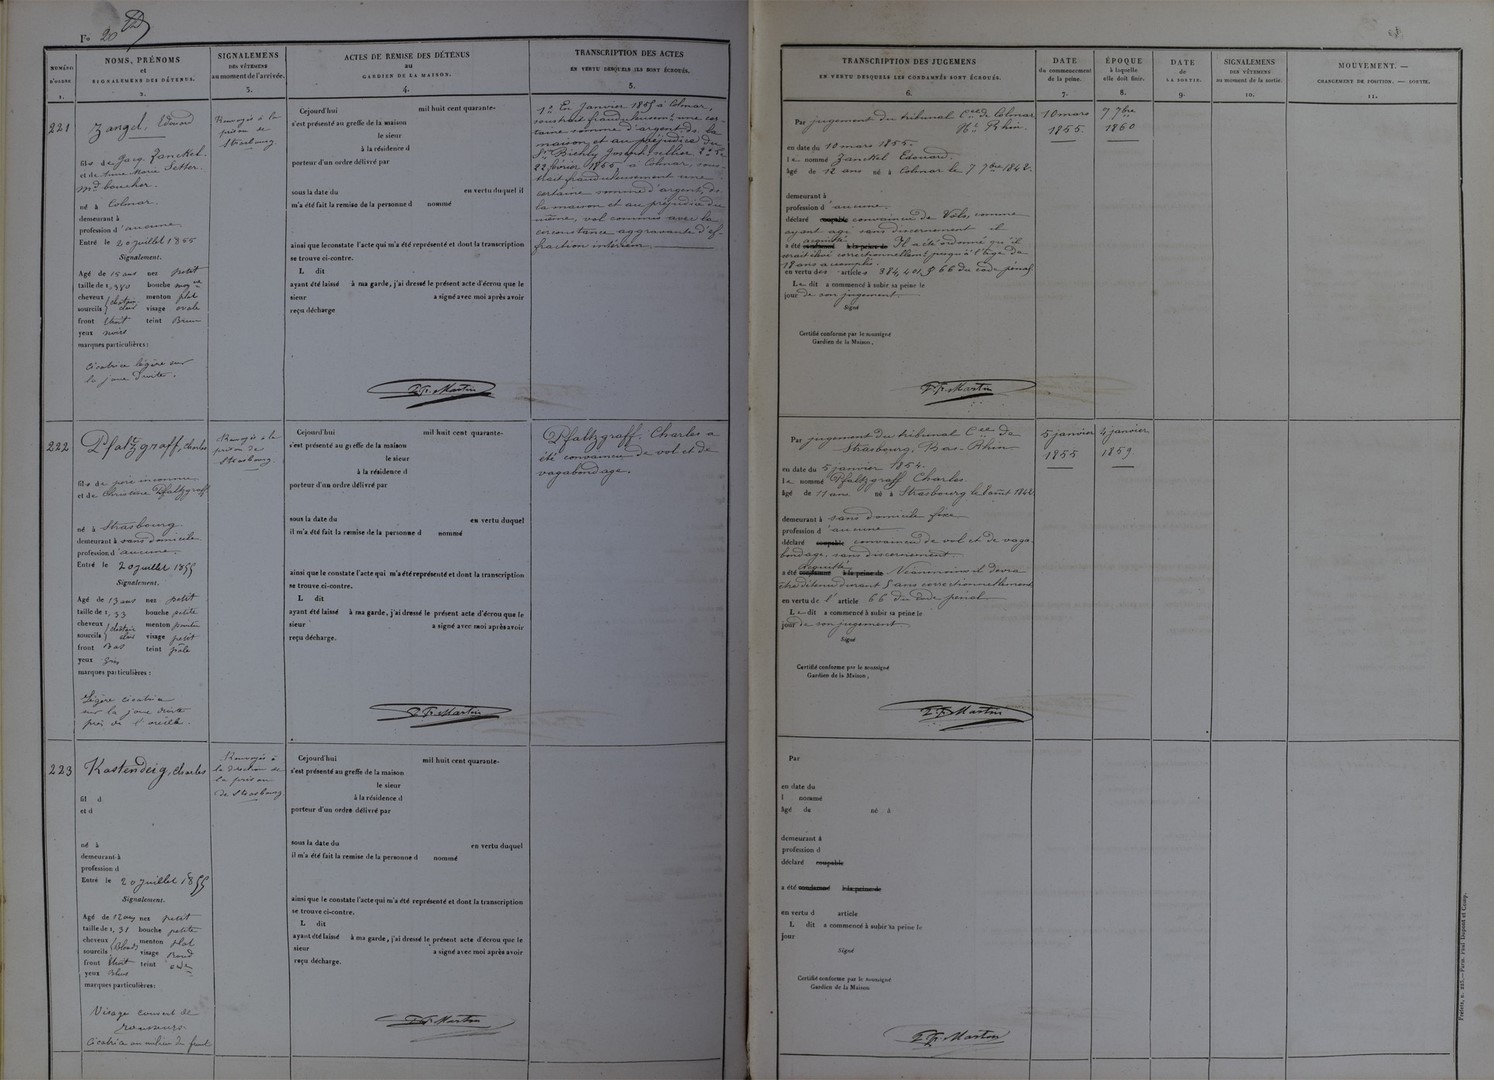 F° 20
NUMÉRO D'ORDRE 1.
NOMS, PRÉNOMS
et
SIGNALEMENS DES DÉTENUS.
2.
SIGNALEMENS
DES VÊTEMENS
au moment de l'arrivée.
3.
ACTES DE REMISE DES DÉTENUS
au
GARDIEN DE LA MAISON.
4.
TRANSCRIPTION DES ACTES
EN VERTU DESQUELS ILS SONT ÉCROUÉS.
5.
221
Zangel, Edouard
fils de Jacq. Zanckel.
et de Anne Marie Setter.
md boucher.
né à Colmar.
demeurant à
profession d'aucune
Entré le 20 juillet 1855
Signalement.
Agé de 15 ans nez petit
taille de 1,380 bouche moyne
cheveux châtain menton plat
sourcils clair visage ovale
front étroit teint Brun
yeux noirs
marques particulières:
Cicatrice légère sur
la joue droite.
Renvoyés à la
prison de
Strasbourg
Cejourd'hui mil huit cent quarante-
s'est présenté au greffe de la maison
le sieur
à la résidence d
porteur d'un ordre délivré par
sous la date du en vertu duquel il
m'a été fait la remise de la personne d nommé
ainsi que le constate l'acte qui m'a été représenté et dont la transcription
se trouve ci-contre.
L dit
ayant été laissé à ma garde, j'ai dressé le présent acte d'écrou que le
sieur a signé avec moi après avoir
reçu décharge
Martin
1° En Janvier 1855 à Colmar,
soustrait frauduleusement une cer-
taine somme d'argent, ds la
maison et au préjudice du
Sr Bichly Joseph sellier 2° Le
22 février 1855, à Colmar, sous-
trait frauduleusement une
certaine somme d'argent, ds
la maison et au préjudice du
même, vol commis avec la
circonstance aggravante d'ef-
fraction intérieure.
222
Pfaltzgraff, Charles
fils de père inconnu
et de Christine Pfaltzgraff
né à Strasbourg
demeurant à sans domicile
profession d'aucune
Entré le 20 juillet 1855
Signalement.
Agé de 13 ans nez petit
taille de 1,33 bouche petite
cheveux châtain menton pointu
sourcils clair visage petit
front bas teint pâle
yeux gris
marques particulières:
Légère cicatrice
sur la joue droite
près de l'oreille.
Renvoyés à la
prison de
Strasbourg
Cejourd'hui mil huit cent quarante-
s'est présenté au greffe de la maison
le sieur
à la résidence d
porteur d'un ordre délivré par
sous la date du en vertu duquel
il m'a été fait la remise de la personne d nommé
ainsi que le constate l'acte qui m'a été représenté et dont la transcription
se trouve ci-contre.
L dit
ayant été laissé à ma garde, j'ai dressé le présent acte d'écrou que le
sieur a signé avec moi après avoir
reçu décharge.
Martin
Pfaltzgraff, Charles a
été convaincu de vol et de
vagabondage.
223
Kostendeig, Charles
fil d
et d
né à
demeurant à
profession d
Entré le 20 juillet 1855
Signalement.
Agé de 12 ans nez petit
taille de 1,31 bouche petite
cheveux Blonds menton plat
sourcils visage rond
front étroit teint
yeux Bleus
marques particulières:
Visage couvert de
rousseurs.
Cicatrice au milieu du front
Renvoyés à
la direction de
la prison
de Strasbourg
Cejourd'hui mil huit cent quarante-
s'est présenté au greffe de la maison
le sieur
à la résidence d
porteur d'un ordre délivré par
sous la date du en vertu duquel
il m'a été fait la remise de la personne d nommé
ainsi que le constate l'acte qui m'a été représenté et dont la transcription
se trouve ci-contre.
L dit
ayant été laissé à ma garde, j'ai dressé le présent acte d'écrou que le
sieur a signé avec moi après avoir
reçu décharge.
Martin
TRANSCRIPTION DES JUGEMENS
EN VERTU DESQUELS LES CONDAMNÉS SONT ÉCROUÉS.
6.
DATE
du commencement
de la peine.
7.
ÉPOQUE
à laquelle
elle doit finir.
8.
DATE
de
LA SORTIE.
9.
SIGNALEMENS
DES VÊTEMENS
au moment de la sortie.
10.
MOUVEMENT. —
CHANGEMENT DE POSITION. — SORTIE.
11.
Par jugement du tribunal Cel de Colmar
Ht Rhin.
en date du 10 mars 1855.
le nommé Zanckel Edouard.
âgé de 12 ans né à Colmar le 7 7bre 1842.
demeurant à
profession d'aucune
déclaré coupable convaincu de Vols, comme
ayant agi sans discernement il
a été condamné acquitté à la peine de Il a été ordonné qu'il
serait élevé correctionnellement jusqu'à l'âge de
18 ans accomplis.
en vertu des articles 384, 401, & 66 du code pénal
Le dit a commencé à subir sa peine le
jour de son jugement
Signé
Certifié conforme par le soussigné
Gardien de la Maison,
Martin
10 mars
1855
7 7bre
1860
Par jugement du tribunal Cel de
Strasbourg, Bas-Rhin
en date du 5 janvier 1854.
le nommé Pfaltzgraff Charles
âgé de 11 ans né à Strasbourg le août 1842
demeurant à sans domicile fixe
profession d'aucune
déclaré coupable convaincu de vol et de vaga-
bondage, sans discernement
a été condamné acquitté à la peine de Néanmoins il devra
être détenu durant 5 ans correctionnellement
en vertu de l'article 66 du Code pénal
Le dit a commencé à subir sa peine le
jour de son jugement
Signé
Certifié conforme par le soussigné
Gardien de la Maison,
Martin
5 janvier
1855
4 janvier
1859
Par
en date du
l nommé
âgé de né à
demeurant à
profession d
déclaré coupable
a été condamné à la peine de
en vertu d article
L dit a commencé à subir sa peine le
jour
Signé
Certifié conforme par le soussigné
Gardien de la Maison
Martin